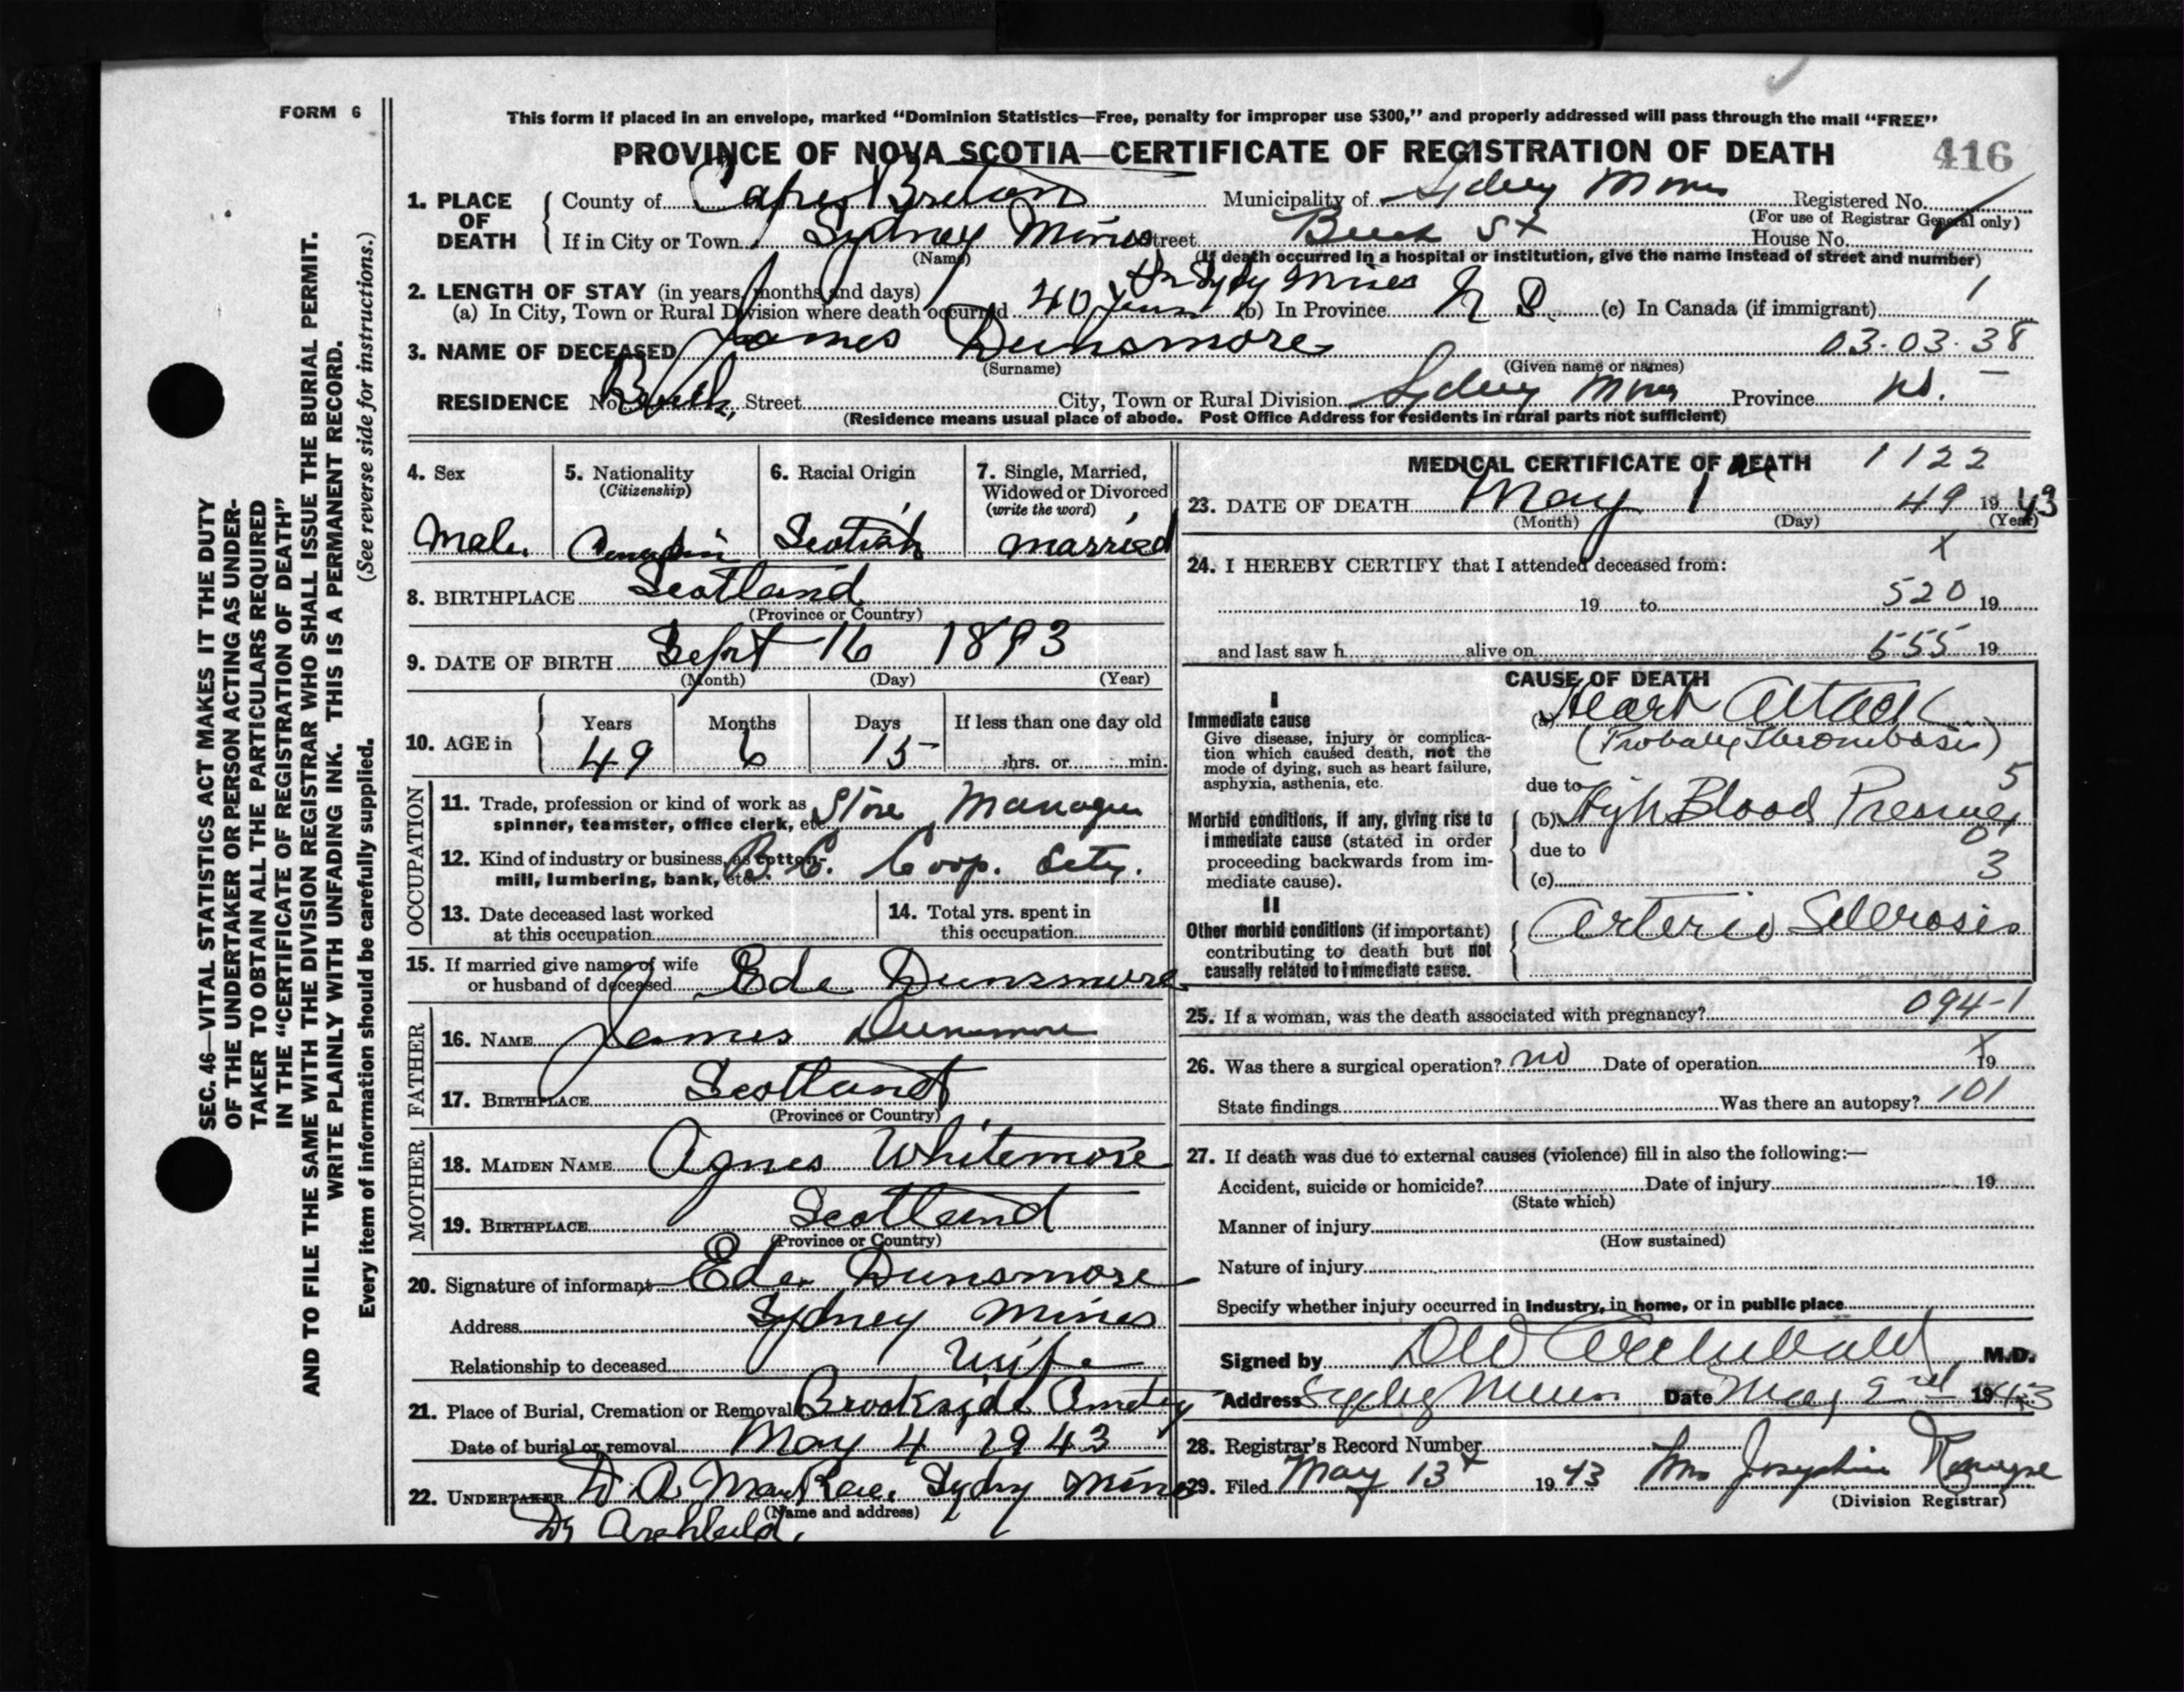 FORM 6
This form if placed in an envelope, marked "Dominion Statistics—Free, penalty for improper use $300," and properly addressed will pass through the mail "FREE"
PROVINCE OF NOVA SCOTIA—CERTIFICATE OF REGISTRATION OF DEATH 416
1. PLACE OF DEATH County of Cape Breton Municipality of Sydney Mines Registered No.
(For use of Registrar General only)
If in City or Town Sydney Mines Street St House No.
(Name) (If death occurred in a hospital or institution, give the name instead of street and number)
2. LENGTH OF STAY (in years, months and days) In Sydy Mines 1
(a) In City, Town or Rural Division where death occurred 40 years (b) In Province N S. (c) In Canada (if immigrant)
3. NAME OF DECEASED James Dunsmore 03-03-38
(Surname) (Given name or names)
RESIDENCE No. Street City, Town or Rural Division Sydney Mines Province NS.
(Residence means usual place of abode. Post Office Address for residents in rural parts not sufficient)
SEC. 46—VITAL STATISTICS ACT MAKES IT THE DUTY
OF THE UNDERTAKER OR PERSON ACTING AS UNDER-
TAKER TO OBTAIN ALL THE PARTICULARS REQUIRED
IN THE "CERTIFICATE OF REGISTRATION OF DEATH"
AND TO FILE THE SAME WITH THE DIVISION REGISTRAR WHO SHALL ISSUE THE BURIAL PERMIT.
WRITE PLAINLY WITH UNFADING INK. THIS IS A PERMANENT RECORD.
Every item of information should be carefully supplied. (See reverse side for instructions.)
4. Sex
Male
5. Nationality
(Citizenship)
Canadian
6. Racial Origin
Scotish
7. Single, Married,
Widowed or Divorced
(write the word)
married
8. BIRTHPLACE Scotland
(Province or Country)
9. DATE OF BIRTH Sept 16 1893
(Month) (Day) (Year)
10. AGE in
Years Months Days If less than one day old
49 6 15 hrs. or min.
OCCUPATION
11. Trade, profession or kind of work as
spinner, teamster, office clerk, etc. Store Manager
12. Kind of industry or business, as cotton-
mill, lumbering, bank, etc. B. C. Coop. Scty.
13. Date deceased last worked
at this occupation
14. Total yrs. spent in
this occupation
15. If married give name of wife
or husband of deceased Ede Dunsmore
FATHER
16. NAME James Dunsmore
17. BIRTHPLACE Scotland
(Province or Country)
MOTHER
18. MAIDEN NAME Agnes Whitemore
19. BIRTHPLACE Scotland
(Province or Country)
20. Signature of informant Ede Dunsmore
Address Sydney Mines
Relationship to deceased Wife
21. Place of Burial, Cremation or Removal Brookside Cmetey
Date of burial or removal May 4 1943
22. UNDERTAKER D. A. MacRae. Sydny Mines
(Name and address)
Dr
MEDICAL CERTIFICATE OF DEATH 1122
23. DATE OF DEATH May 1 49 1943
(Month) (Day) (Year)
x
24. I HEREBY CERTIFY that I attended deceased from:
19 to 520 19
and last saw h alive on 555 19
CAUSE OF DEATH
I
Immediate cause
Give disease, injury or complica-
tion which caused death, not the
mode of dying, such as heart failure,
asphyxia, asthenia, etc.
(a) Heart Attack
(Probably Thrombosis)
due to 5
Morbid conditions, if any, giving rise to
immediate cause (stated in order
proceeding backwards from im-
mediate cause).
(b) High Blood Pressure
due to
(c) 3
II
Other morbid conditions (if important)
contributing to death but not
causally related to immediate cause.
Arterio Sclerosis
25. If a woman, was the death associated with pregnancy? 094-1
26. Was there a surgical operation? no Date of operation x 19
State findings Was there an autopsy? 101
27. If death was due to external causes (violence) fill in also the following:—
Accident, suicide or homicide? Date of injury 19
(State which)
Manner of injury
(How sustained)
Nature of injury
Specify whether injury occurred in industry, in home, or in public place
Signed by Archibald M.D.
Address Sydney Mines Date May 2nd 1943
28. Registrar's Record Number
29. Filed May 13 1943 Mrs Josephine
(Division Registrar)